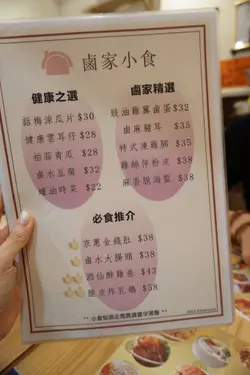 鹵家小食
健康之選
話梅涼瓜片 $30
健康雲耳仔 $28
拍蒜青瓜 $28
鹵水豆腐 $32
蠔油時菜 $22
鹵家精選
豉油雞翼鹵蛋 $32
鹵麻豬耳 $35
特式凍雞腳 $35
雞絲伴粉皮 $38
麻香脆海蜇 $38
必食推介
京蔥金錢肚 $38
鹵水大腸頭 $38
酒仙醉雞卷 $43
脆皮炸乳鴿 $58